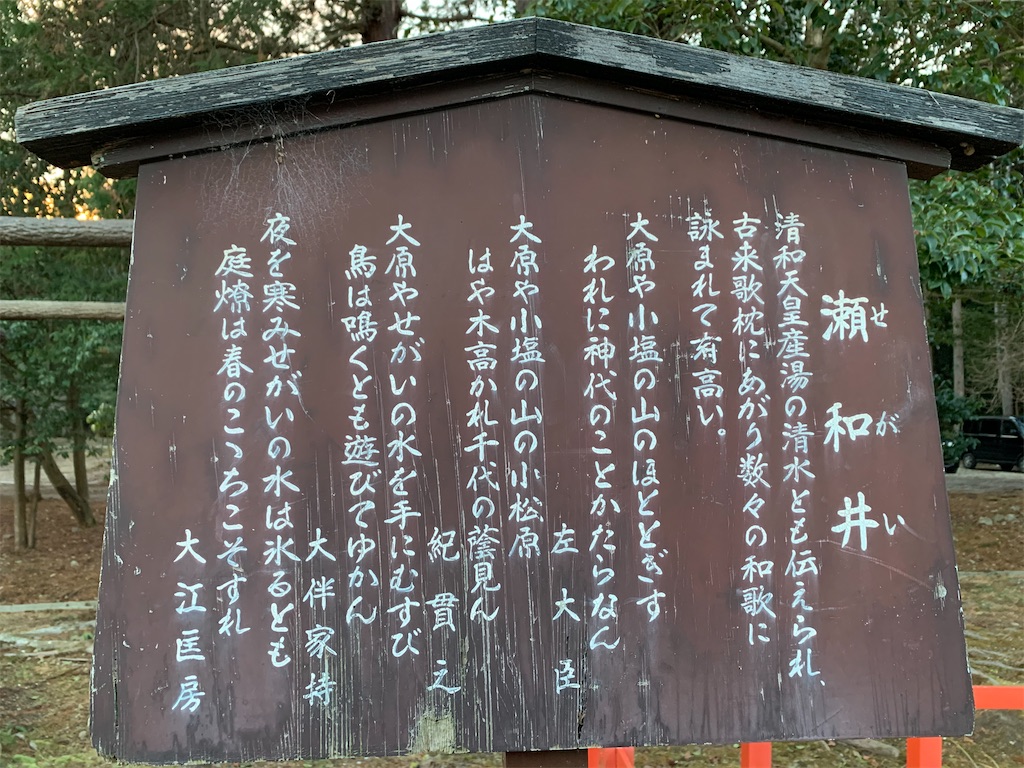 瀬和井
せがい
清和天皇産湯の清水とも伝えられ、
古来歌枕にあがり数々の和歌に
詠まれて有高い。
大原や小塩の山のほとどぎす
われに神代のことかたらなん
左大臣
大原や小塩の山の小松原
はや木高かれ千代の蔭見ん
紀貫之
大原やせがいの水を手にむすび
鳥は鳴くとも遊びてゆかん
大伴家持
夜を寒みせがいの水は氷るとも
庭燎は春のこゝちこそすれ
大江匡房